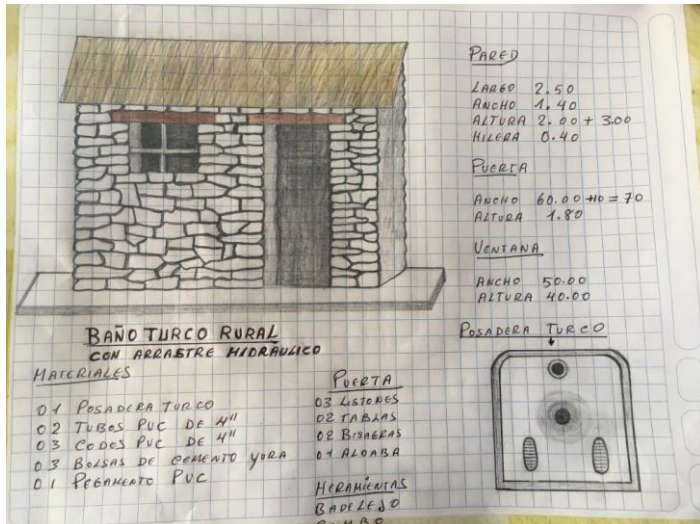 PARED
LARGO 2.50
ANCHO 1.40
ALTURA 2.00 + 3.00
HILERA 0.40
PUERTA
ANCHO 60.00 +10 = 70
ALTURA 1.80
VENTANA
ANCHO 50.00
ALTURA 40.00
POSADERA TURCO
BAÑO TURCO RURAL
CON ARRASTRE HIDRÁULICO
MATERIALES
01 POSADERA TURCO
02 TUBOS PVC DE 4"
03 CODOS PVC DE 4"
03 BOLSAS DE CEMENTO YURA
01 PEGAMENTO PVC
PUERTA
03 LISTONES
02 TABLAS
02 BISAGRAS
01 ALDABA
HERAMIENTAS
BADELEJO